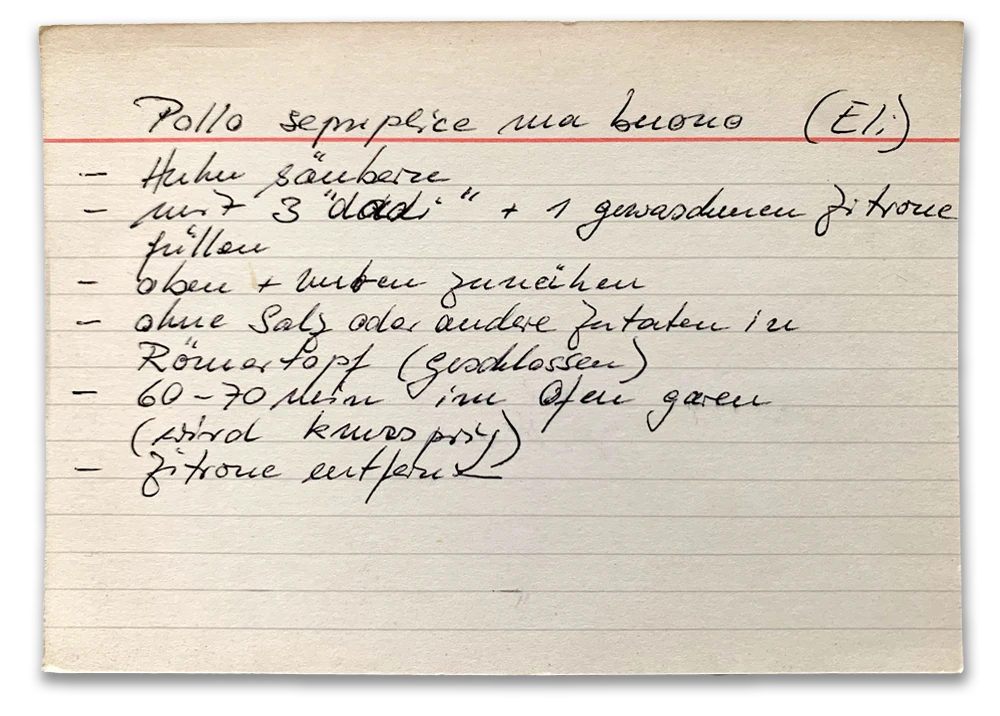 Pollo sempelice ma buono (Eli)
- Huhn säubern
- mit 3 "dadi" + 1 gewaschenen Zitrone
füllen
- oben + unten zunähen
- ohne Salz oder andere Zutaten in
Römertopf (geschlossen)
- 60-70 min im Ofen garen
(wird knusprig)
- Zitrone entfernen